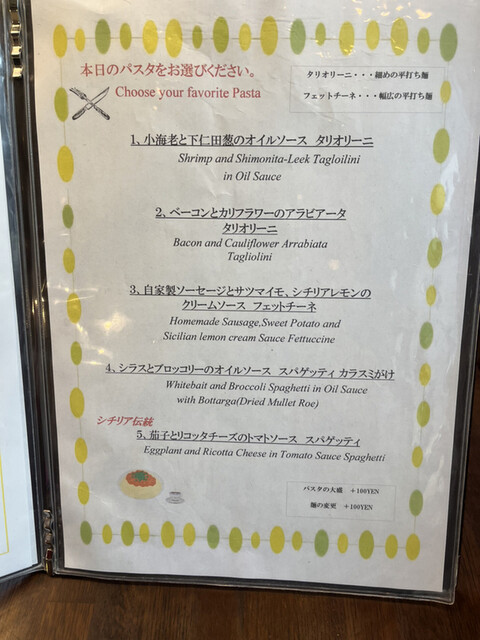 本日のパスタをお選びください。
Choose your favorite Pasta
タリオリーニ・・・細めの平打ち麺
フェットチーネ・・・幅広の平打ち麺
1、小海老と下仁田葱のオイルソース タリオリーニ
Shrimp and Shimonita-Leek Tagloilini
in Oil Sauce
2、ベーコンとカリフラワーのアラビアータ
タリオリーニ
Bacon and Cauliflower Arrabiata
Tagliolini
3、自家製ソーセージとサツマイモ、シチリアレモンの
クリームソース フェットチーネ
Homemade Sausage,Sweet Potato and
Sicilian lemon cream Sauce Fettuccine
4、シラスとブロッコリーのオイルソース スパゲッティ カラスミがけ
Whitebait and Broccoli Spaghetti in Oil Sauce
with Bottarga(Dried Mullet Roe)
シチリア伝統
5、茄子とリコッタチーズのトマトソース スパゲッティ
Eggplant and Ricotta Cheese in Tomato Sauce Spaghetti
パスタの大盛 +100YEN
麺の変更 +100YEN